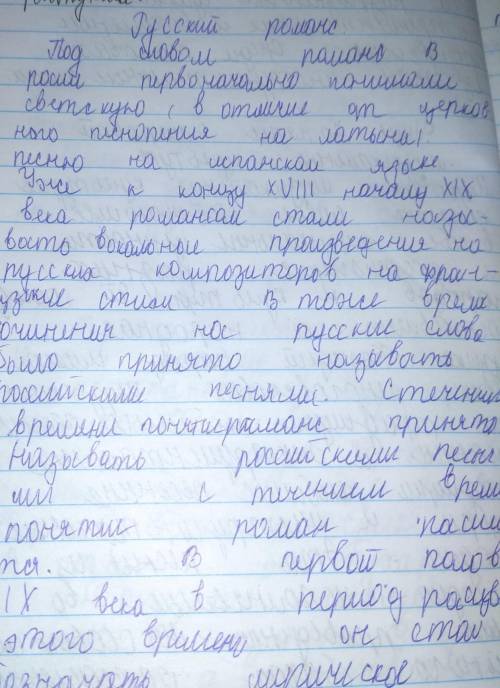 Русский романс
Под словом паманс в
росии первоначально понимали
светскую (в отличие от церков
ного песнопения на латыни)
песню на испанском языке
Уже к концу XVIII началу XIX
века романсам стали назы-
вать вокальные произведения на
русских композиторов на фран-
цузкие стихи В тоже время
очинения нос русские слова
было принято называть
российскими песнями. С течении
времени понятие романс принято
Называть российскими песня
ми с течением време
понятие роман расши
тся. В первой полов
IX века в период расцв
этого времени он стал
означать лирическое